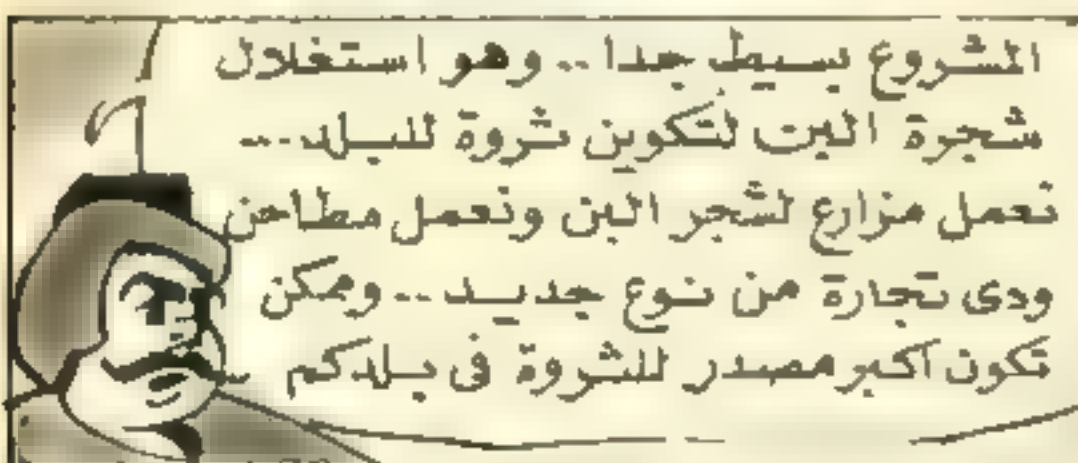 المشروع بسيط جدا .. وهو استغلال
شجرة البن لتكوين ثروة للبلد ...
نعمل مزارع لشجر البن ونعمل مطاحن
ودى تجارة من نوع جديد .. وممكن
تكون أكبر مصدر للثروة فى بلدكم